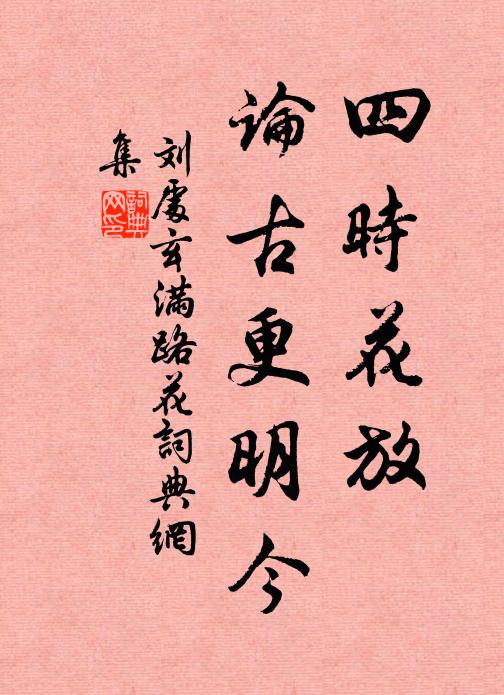 四時花放
論古更明今
刘處玄满路花詞典網
集
詞典網印